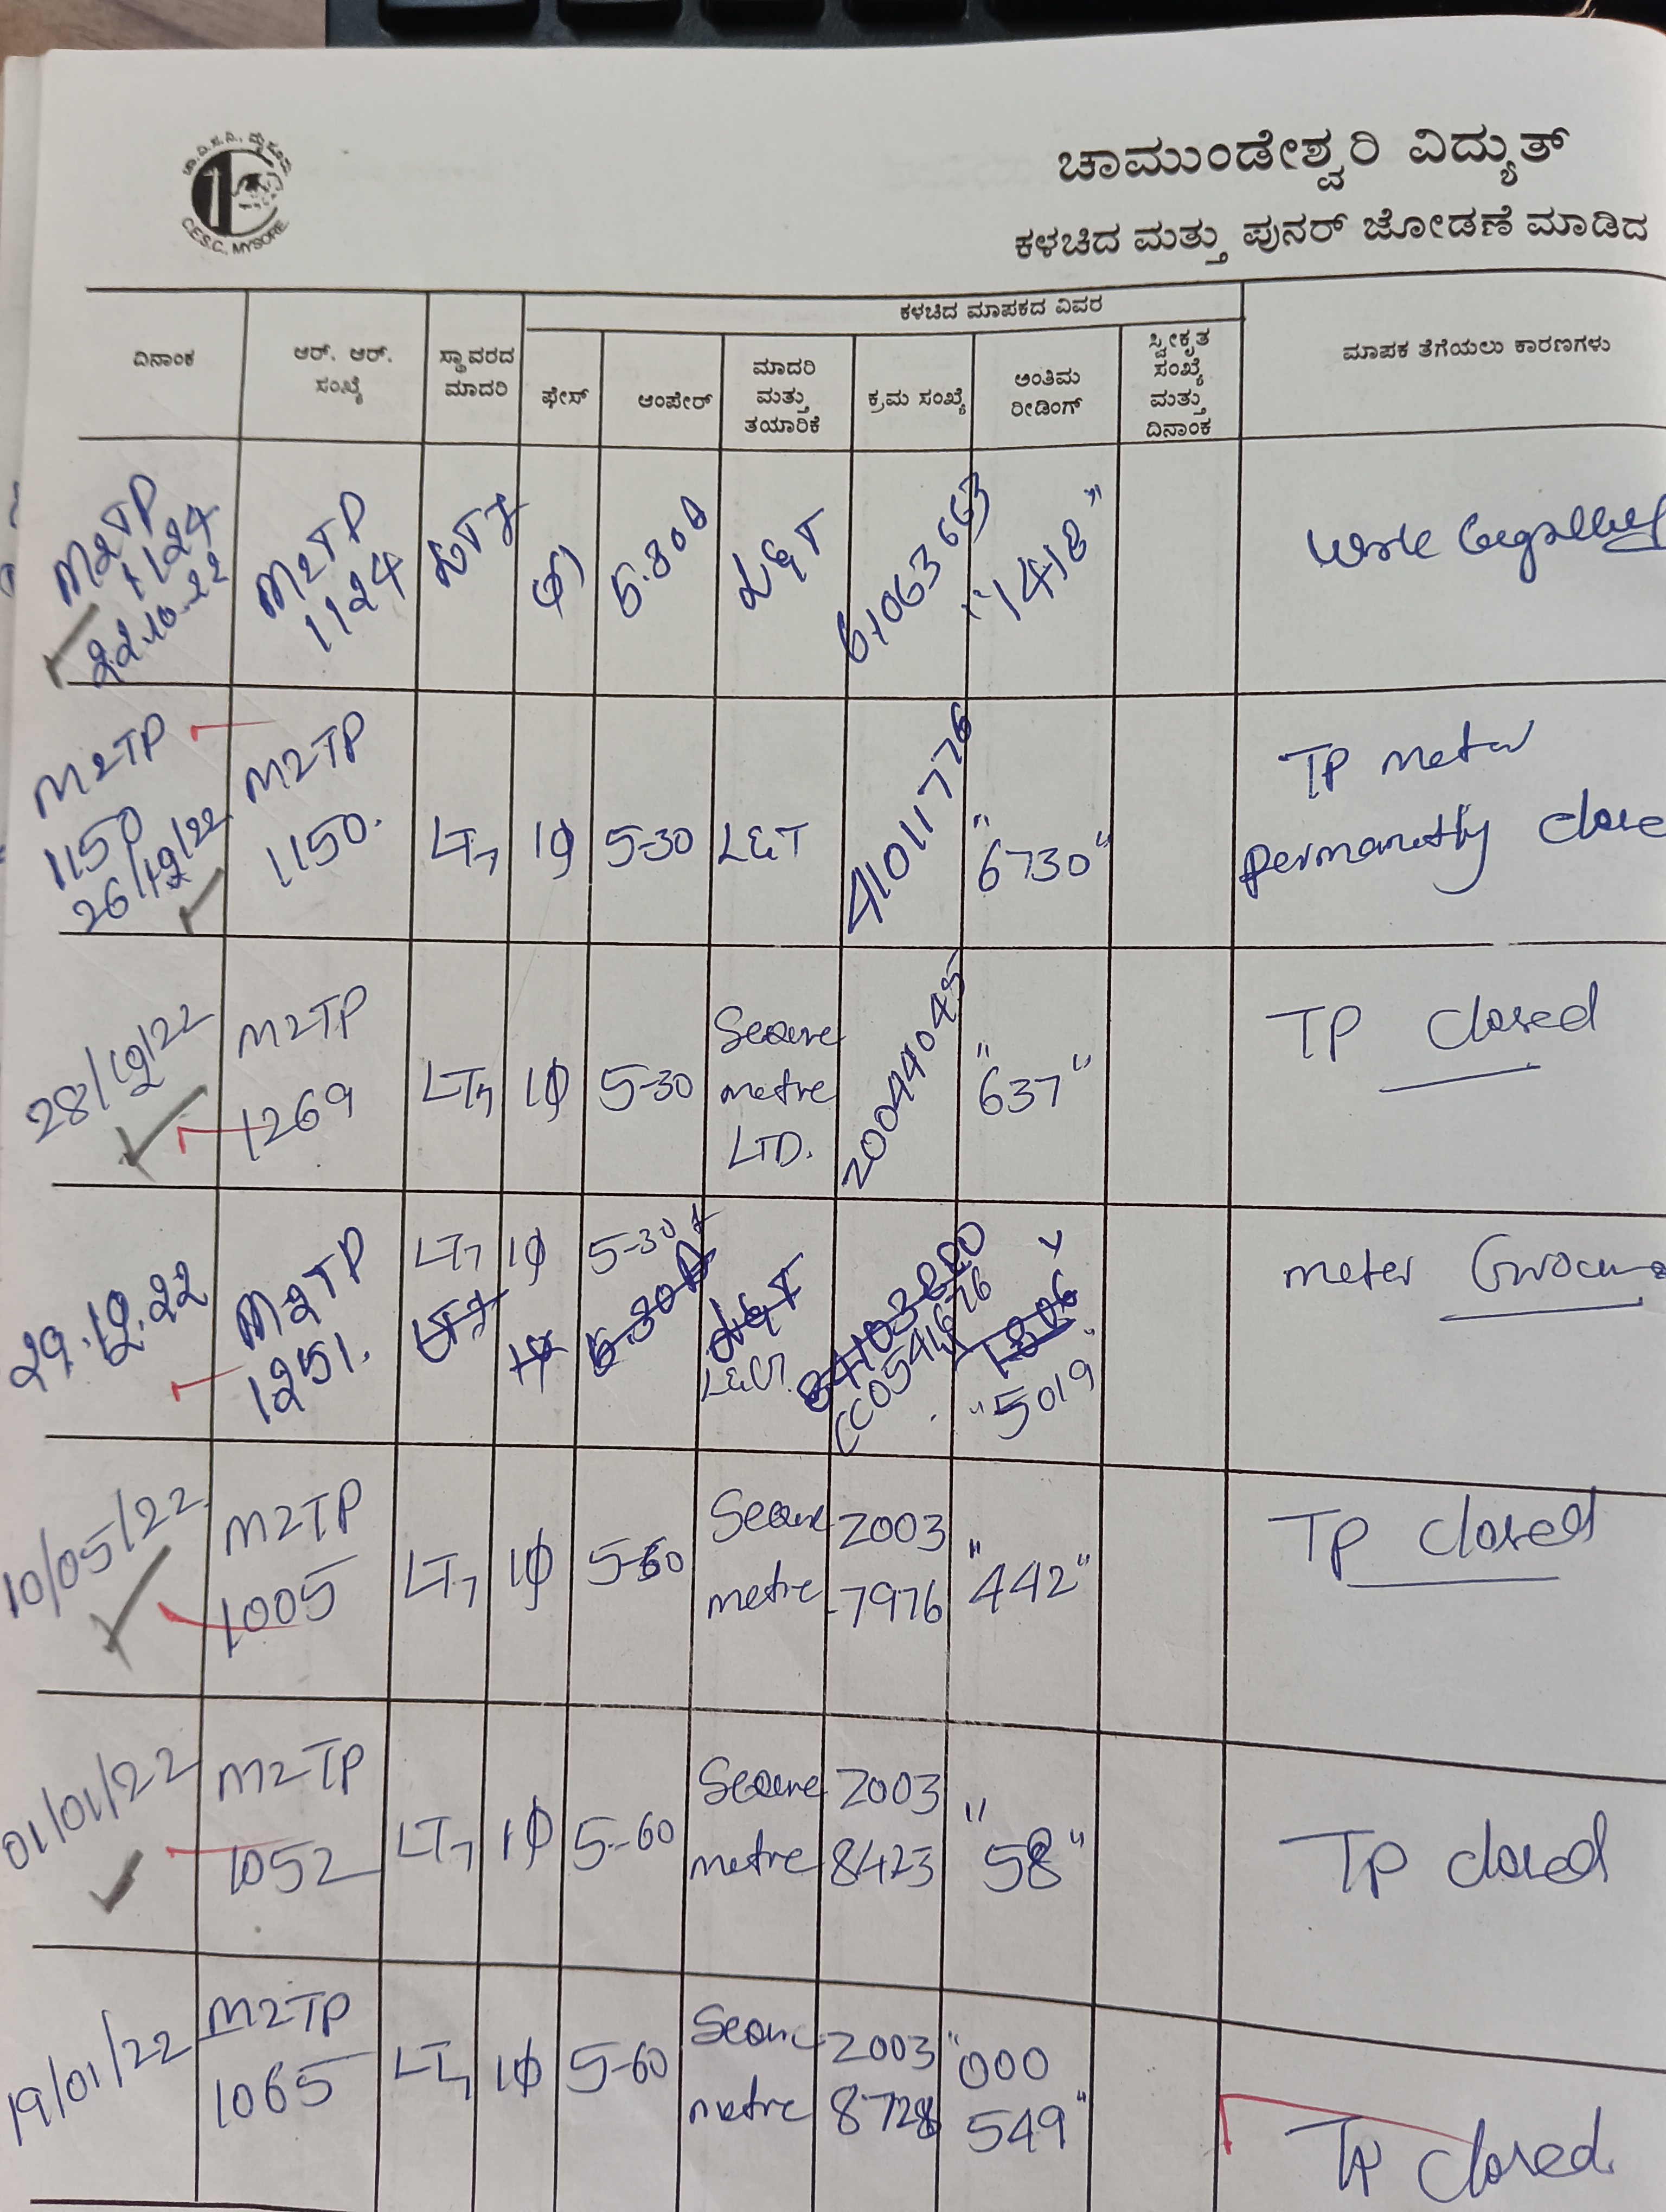 ಚಾ.ವಿ.ಸ.ನಿ., ಮೈಸೂರು
C.E.S.C., MYSORE.
ಚಾಮುಂಡೇಶ್ವರಿ ವಿದ್ಯುತ್
ಕಳಚಿದ ಮತ್ತು ಪುನರ್ ಜೋಡಣೆ ಮಾಡಿದ
ದಿನಾಂಕ
ಆರ್. ಆರ್.
ಸಂಖ್ಯೆ
ಸ್ಥಾವರದ
ಮಾದರಿ
ಕಳಚಿದ ಮಾಪಕದ ವಿವರ
ಫೇಸ್
ಆಂಪೇರ್
ಮಾದರಿ
ಮತ್ತು
ತಯಾರಿಕೆ
ಕ್ರಮ ಸಂಖ್ಯೆ
ಅಂತಿಮ
ರೀಡಿಂಗ್
ಸ್ವೀಕೃತ
ಸಂಖ್ಯೆ
ಮತ್ತು
ದಿನಾಂಕ
ಮಾಪಕ ತೆಗೆಯಲು ಕಾರಣಗಳು
M2TP
1124
22.10.22
M2TP
1124
LT7
L&T
61063663
"1418"
M2TP
1150
26/12/22
M2TP
1150.
LT7
1φ
5-30
L&T
41011776
"6730"
TP meter
permanetly close
28/12/22
M2TP
1269
LT7
1φ
5-30
Secure
metre
LTD.
20044045
"637"
TP closed
29.12.22
M2TP
1251.
LT7
1φ
5-30
L&T
CC0541676
"5019"
meter
10/05/22
M2TP
1005
LT7
1φ
5-60
Secure
metre
2003
7976
"442"
TP closed
01/01/22
M2TP
1052
LT7
1φ
5-60
Secure
metre
2003
8423
"58"
TP closed
19/01/22
M2TP
1065
LT7
1φ
5-60
Secure
metre
2003
8728
"000
549"
TP closed.